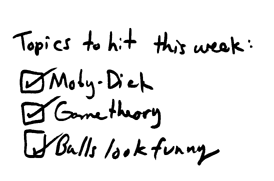 Topics to hit this week:
☑ Moby-Dick
☑ Game theory
☑ Balls look funny